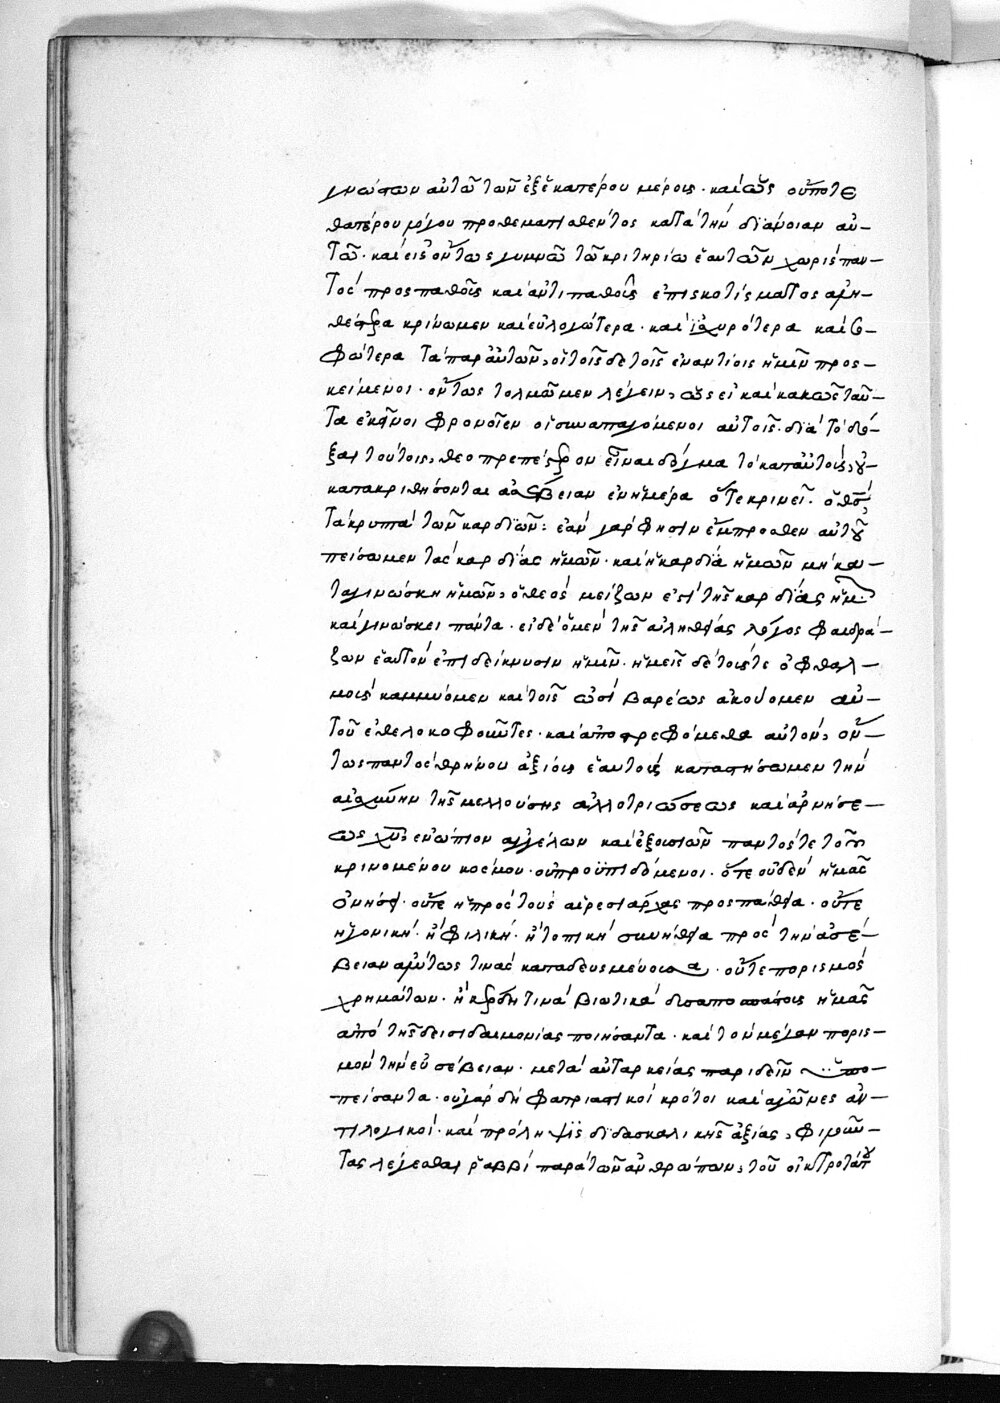 γνώντων αὐτῶν τῶν ἐξ ἑκατέρου μέρους· καὶ ὡς οὔποτε
θατέρου μόνου προθεματισθέντος κατὰ τὴν διάνοιαν αὐ-
τῶν· καὶ εἰς οὕτως γυμνῶ τῶ κριτηρίω ἑαυτῶν χωρὶς παν-
τὸς προσπαθοῦς καὶ ἀντιπαθοῦς ἐπισκοτίσματος ἀλη-
θέστερα κρίνωμεν καὶ εὐλογώτερα· καὶ ἰσχυρότερα καὶ σο-
φώτερα τὰ παρ' αὐτῶν, οἱ τοῖς δὲ τοῖς ἐναντίοις ἡμῖν προσ-
κείμενοι· οὕτως τολμῶμεν λέγειν, ὡς εἰ καὶ κακῶς ταῦ-
τα ἐκεῖνοι φρονοῖεν οἱ συναπαγόμενοι αὐτοῖς· διὰ τὸ δό-
ξαι τούτοις, θεοπρεπέστερον εἶναι δόγμα τὸ κατ' αὐτοὺς, οὐ
κατακριθήσονται ἀσέβειαν ἐν ἡμέρα ὅτε κρινεῖ ὁ θεὸς
τὰ κρυπτὰ τῶν καρδιῶν: ἐὰν γάρ φησιν ἔμπροσθεν αὐτοῦ
πείσωμεν τὰς καρδίας ἡμῶν· καὶ ἡ καρδία ἡμῶν μὴ κα-
ταγινώσκη ἡμῶν, ὁ θεὸς μείζων ἐστὶ τῆς καρδίας ἡμῶν
καὶ γινώσκει πάντα· εἰ δὲ ὁ μὲν τῆς ἀληθείας λόγος φαιδρά-
ζων ἑαυτὸν ἐπιδείκνυσιν ἡμῖν· ἡμεῖς δὲ τούς τε ὀφθαλ-
μοὺς καμμύομεν καὶ τοῖς ὠσὶ βαρέως ἀκούομεν αὐ-
τοῦ ἐθελοκωφοῦντες· καὶ ἀποστρεφόμεθα αὐτὸν, ὄν-
τως παντὸς θρήνου ἀξίους ἑαυτοὺς καταστήσωμεν τὴν
αἰσχύνην τῆς μελλούσης ἀλλοτριώσεως καὶ ἀρνήσε-
ως χυ, ἐνώπιον ἀγγέλων καὶ ἐξουσιῶν παντός τε τοῦ
κρινομένου κόσμου· οὐ προϋπιδόμενοι· ὅτε οὐδὲν ἡμᾶς
ὀνήσει· οὔτε ἡ πρὸς τοὺς αἱρεσιάρχας προσπάθεια· οὔτε
ἡ γονικὴ· ἢ φιλικὴ· ἢ τοπικὴ συνήθεια πρὸς τὴν ἀσέ-
βειαν ἀλύτως τινὰς καταδεσμεύουσα· οὔτε πορισμὸς
χρημάτων· ἢ κέρδη τινὰ βιωτικὰ ἡμᾶς
ἀπὸ τῆς δεισιδαιμονίας ποιήσαντα· καὶ τὸν μέγαν πορισ-
μὸν τὴν εὐσέβειαν· μετὰ αὐταρκείας παριδεῖν
πείσαντα· οὐ γὰρ δὴ φατριαστικοὶ κρότοι καὶ ἀγῶνες ἀν-
τιλογικοὶ· καὶ πρόληψις διδασκαλικῆς ἀξίας, φιμοῦν-
τας λέγεσθαι ῥαββὶ παρὰ τῶν ἀνθρώπων, τοῦ οἰκτροτάτου